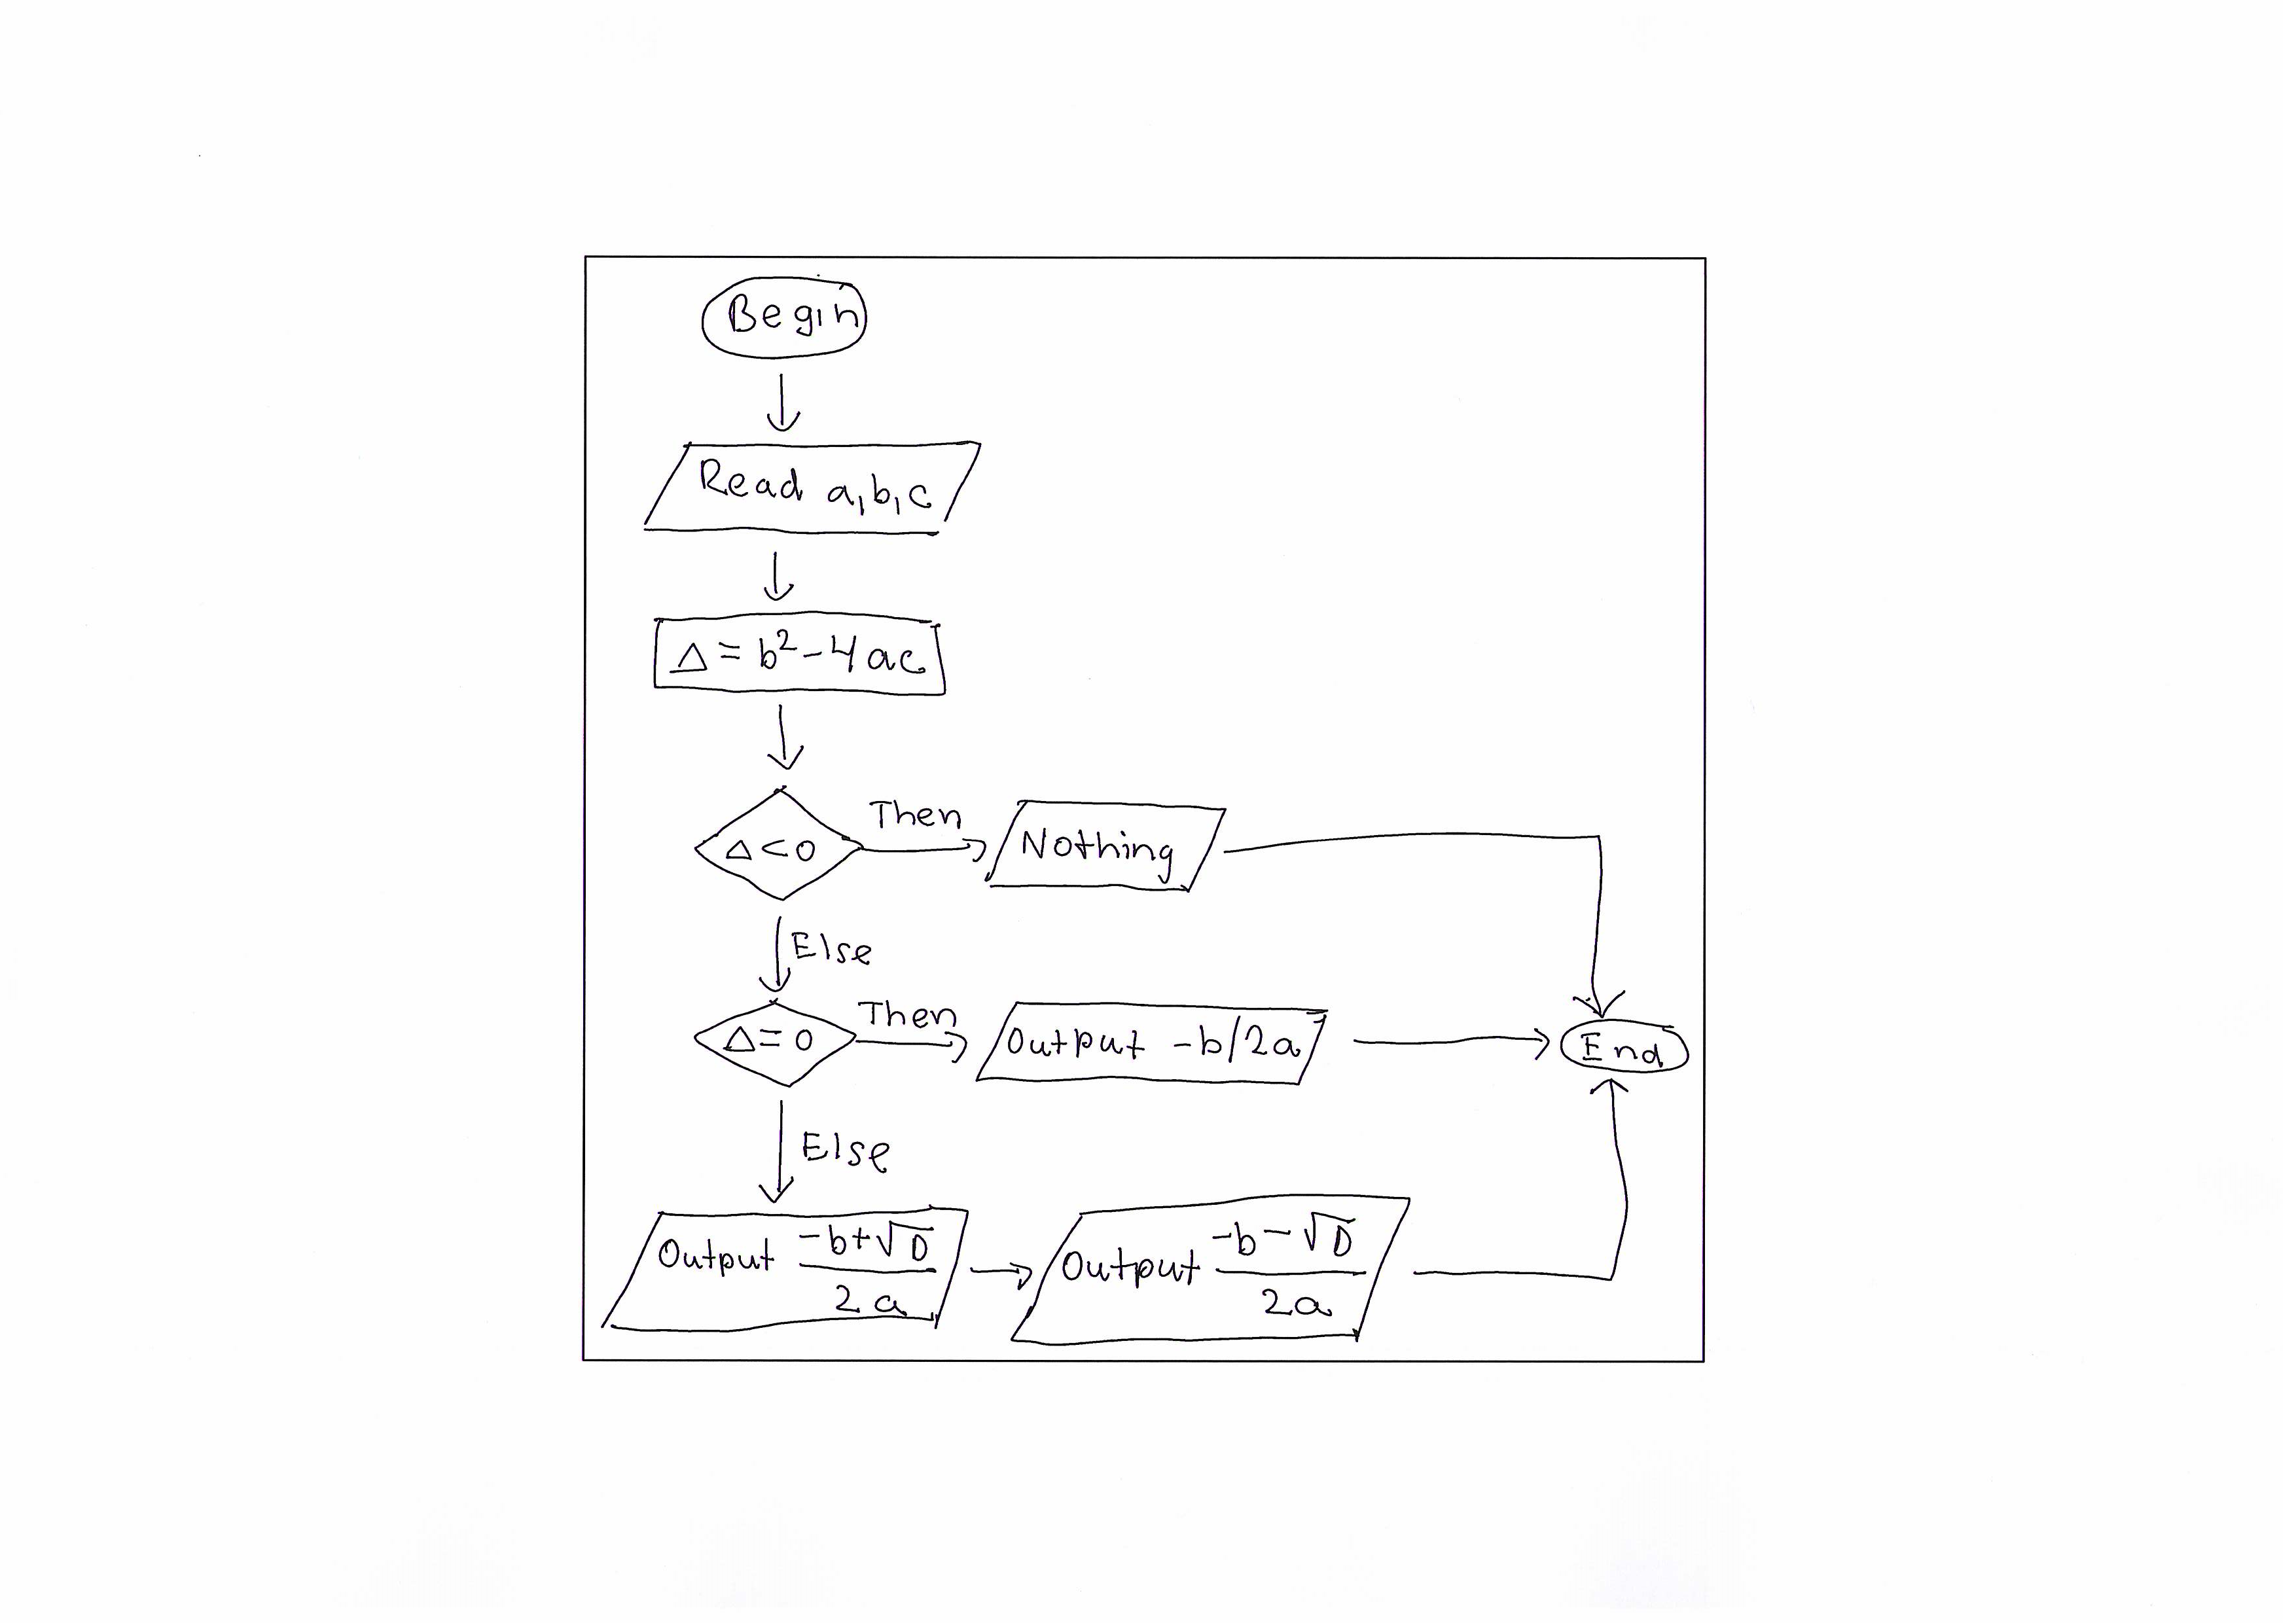 Begin
Read a,b,c
Δ = b² - 4ac
Δ < 0
Then
Nothing
Else
Δ = 0
Then
Output -b/2a
End
Else
Output (-b+√D)/2a
Output (-b-√D)/2a